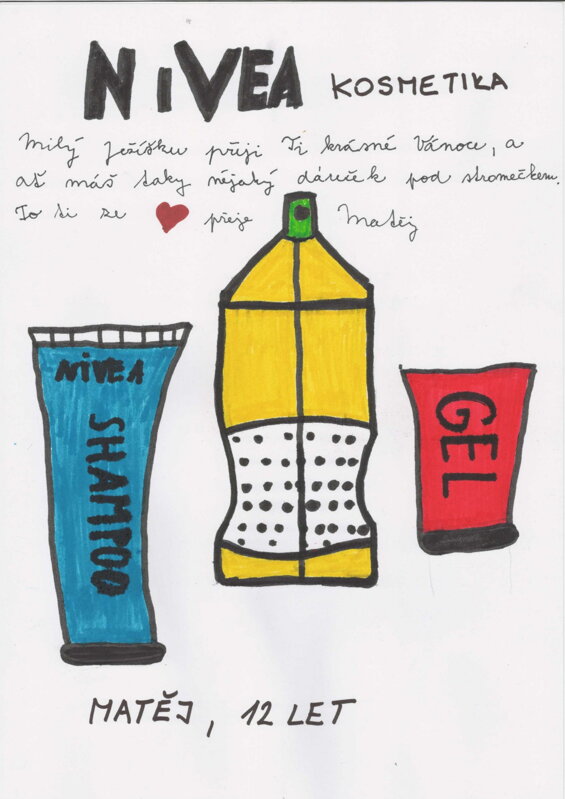 NiVEA KOSMETIKA
Milý Ježíšku přeji Ti krásné Vánoce, a
ať máš taky nějaký dáreček pod stromečkem.
To ti ze přeje Matěj
NiVEA
SHAMPOO
GEL
MATĚJ, 12 LET